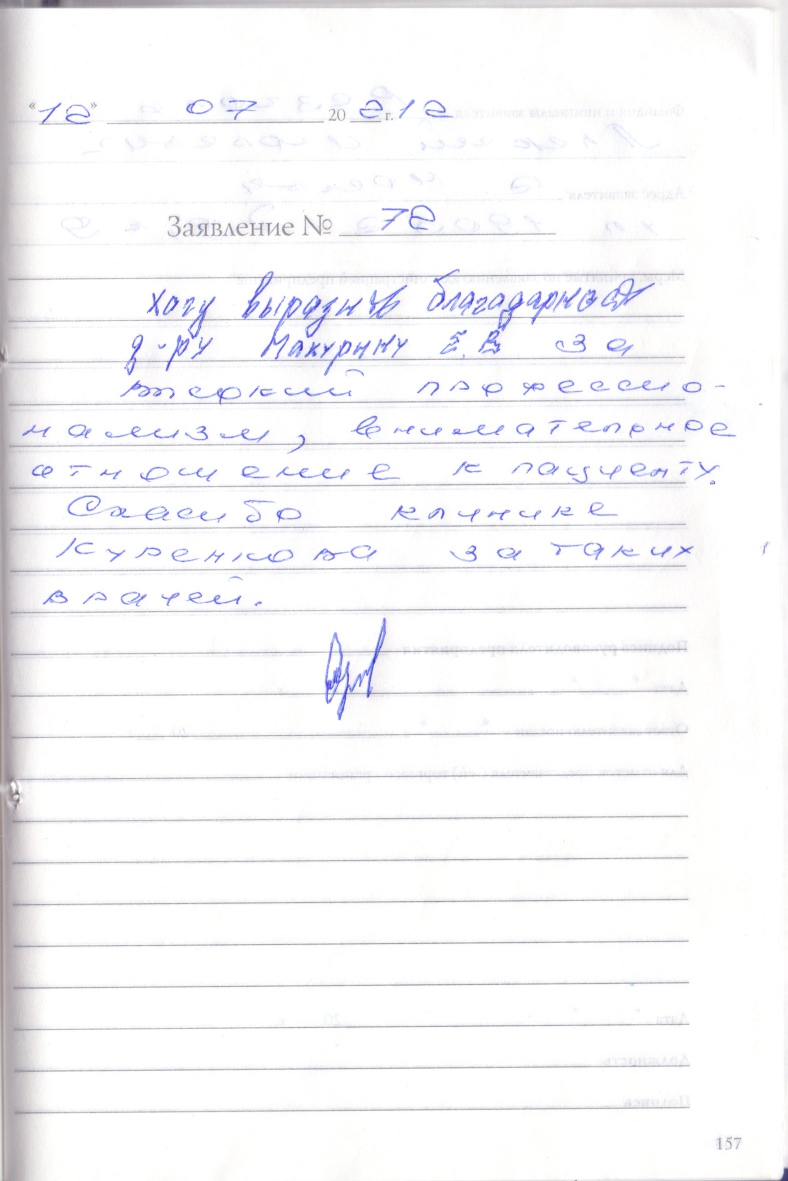 "12" 07 20 2 г. 12
Заявление № 72
Хочу выразить благадарность
д-ру Макурину Е.В за
высокий профессио-
нализм, внимательное
отношение к пациенту.
Спасибо клинике
Куренкова за таких
врачей.
157